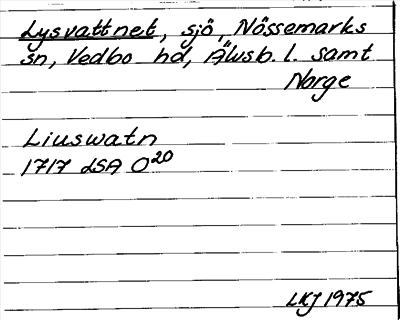 Lysvattnet, sjö, Nössemarks
sn, Vedbo hd, Älvsb. l. samt
Norge
Liuswatn
1717 LSA O20
LKJ 1975